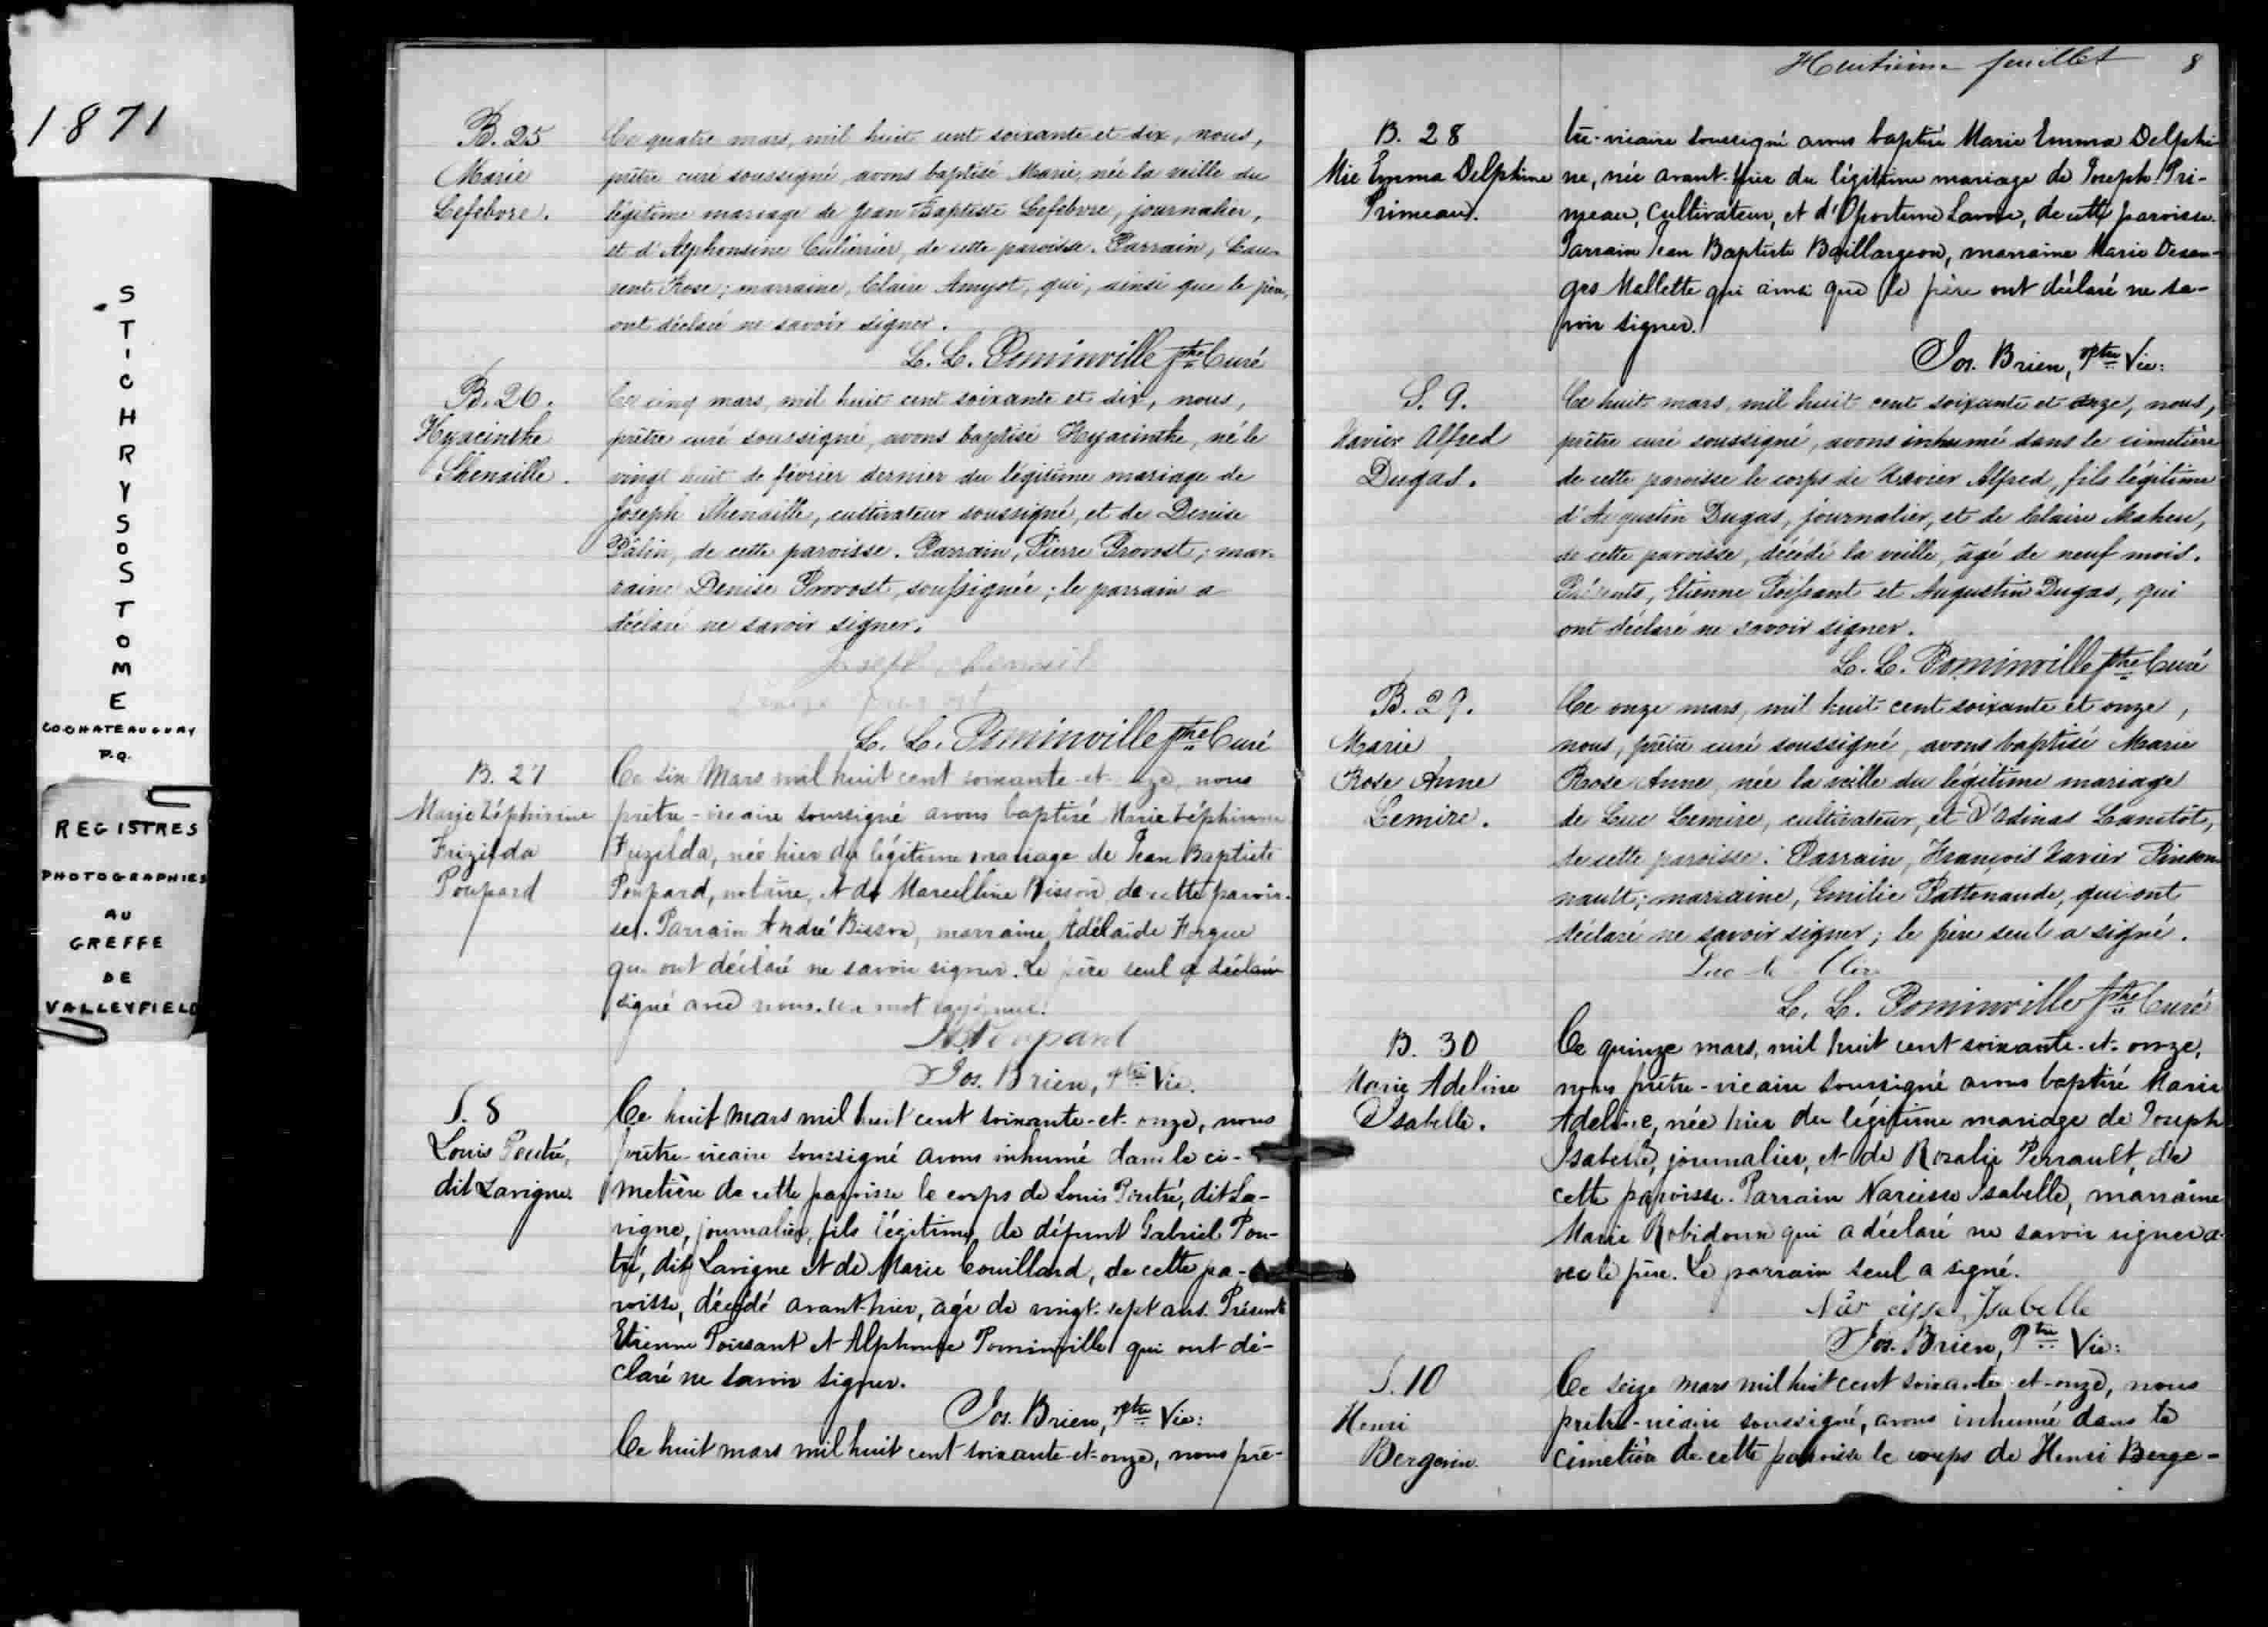 1871
ST-CHRYSOSTOME
CO CHATEAUGUAY
P.Q.
REGISTRES
PHOTOGRAPHIES
AU
GREFFE
DE
VALLEYFIELD
B. 25
Marie
Lefebvre.
Ce quatre mars, mil huit cent soixante et dix, nous,
prêtre curé soussigné, avons baptisé Marie, née la veille du
légitime mariage de Jean Baptiste Lefebvre, journalier,
et d'Alphonsine de cette paroisse. Parrain, Lau-
rent Rose; marraine, Claire Amyot, qui, ainsi que le père,
ont déclaré ne savoir signer.
L. L. Pominville ptre Curé
B. 26.
Hyacinthe
Thenaille.
Ce cinq mars, mil huit cent soixante et dix, nous,
prêtre curé soussigné, avons baptisé Hyacinthe, né le
vingt huit de février dernier du légitime mariage de
Joseph Thenaille, cultivateur soussigné, et de Denise
Pâlin, de cette paroisse. Parrain, Pierre Provost; mar-
raine Denise Provost, soussignée; le parrain a
déclaré ne savoir signer.
Joseph
L. L. Pominville ptre Curé
B. 27
Marie Zéphirine
Frizilda
Poupard
Ce six Mars mil huit cent soixante-et-onze, nous
prêtre-vicaire soussigné avons baptisé Marie Zéphirine
Frizilda, née hier du légitime mariage de Jean Baptiste
Poupard, notaire, et de Marcelline Bisson de cette parois-
se. Parrain André Bisson, marraine Adélaïde Forgue
qui ont déclaré ne savoir signer. Le père seul a déclaré
signé avec nous. un mot rayé nul.
Poupard
Jos. Brien, Ptre Vic.
S. 8
Louis Poutré,
dit Lavigne.
Ce huit mars mil huit cent soixante-et-onze, nous
prêtre-vicaire soussigné avons inhumé dans le ci-
metière de cette paroisse le corps de Louis Poutré, dit La-
vigne, journalier, fils légitime, de défunt Gabriel Pou-
tré, dit Lavigne et de Marie Couillard, de cette pa-
roisse, décédé avant-hier, âgé de vingt-sept ans. Présents
Etienne Poissant et Alphonse Pominville qui ont dé-
claré ne savoir signer.
Jos. Brien, Ptre Vic:
Ce huit mars mil huit cent soixante-et-onze, nous prê-
Huitième feuillet 8
B. 28
Mie Emma Delphine
Primeau.
tre-vicaire soussigné avons baptisé Marie Emma Delphi-
ne, née avant-hier du légitime mariage de Joseph Pri-
meau, Cultivateur, et d'Oportune de cette paroisse.
Parrain Jean Baptiste Baillargeon, marraine Marie Desan-
ges Mallette qui ainsi que le père ont déclaré ne sa-
voir signer.
Jos. Brien, Ptre Vic:
S. 9.
Xavier Alfred
Dugas.
Ce huit mars, mil huit cent soixante et onze, nous,
prêtre curé soussigné, avons inhumé dans le cimetière
de cette paroisse le corps de Xavier Alfred, fils légitime
d'Augustin Dugas, journalier, et de Claire Maheu,
de cette paroisse, décédé la veille, âgé de neuf mois.
Présents, Etienne Poissant et Augustin Dugas, qui
ont déclaré ne savoir signer.
L. L. Pominville ptre Curé
B. 29.
Marie
Rose Anne
Lemire.
Ce onze mars, mil huit cent soixante et onze,
nous, prêtre curé soussigné, avons baptisé Marie
Rose Anne, née la veille du légitime mariage
de Luc Lemire, cultivateur, et d'Odinas Lanctôt,
de cette paroisse. Parrain, François Xavier Pinson-
nault; marraine, Emilie Pattenaude, qui ont
déclaré ne savoir signer; le père seul a signé.
Luc
L. L. Pominville ptre Curé
B. 30
Marie Adeline
Isabelle.
Ce quinze mars, mil huit cent soixante-et-onze,
nous prêtre-vicaire soussigné avons baptisé Marie
Adeline, née hier du légitime mariage de Joseph
Isabelle, journalier, et de Rosalie Perrault, de
cette paroisse. Parrain Narcisse Isabelle, marraine
Marie Robidoux qui a déclaré ne savoir signer a-
vec le père. Le parrain seul a signé.
Narcisse Isabelle
Jos. Brien, Ptre Vic:
S. 10
Henri
Bergevin
Ce seize mars mil huit cent soixante-et-onze, nous
prêtre-vicaire soussigné, avons inhumé dans le
cimetière de cette paroisse le corps de Henri Berge-